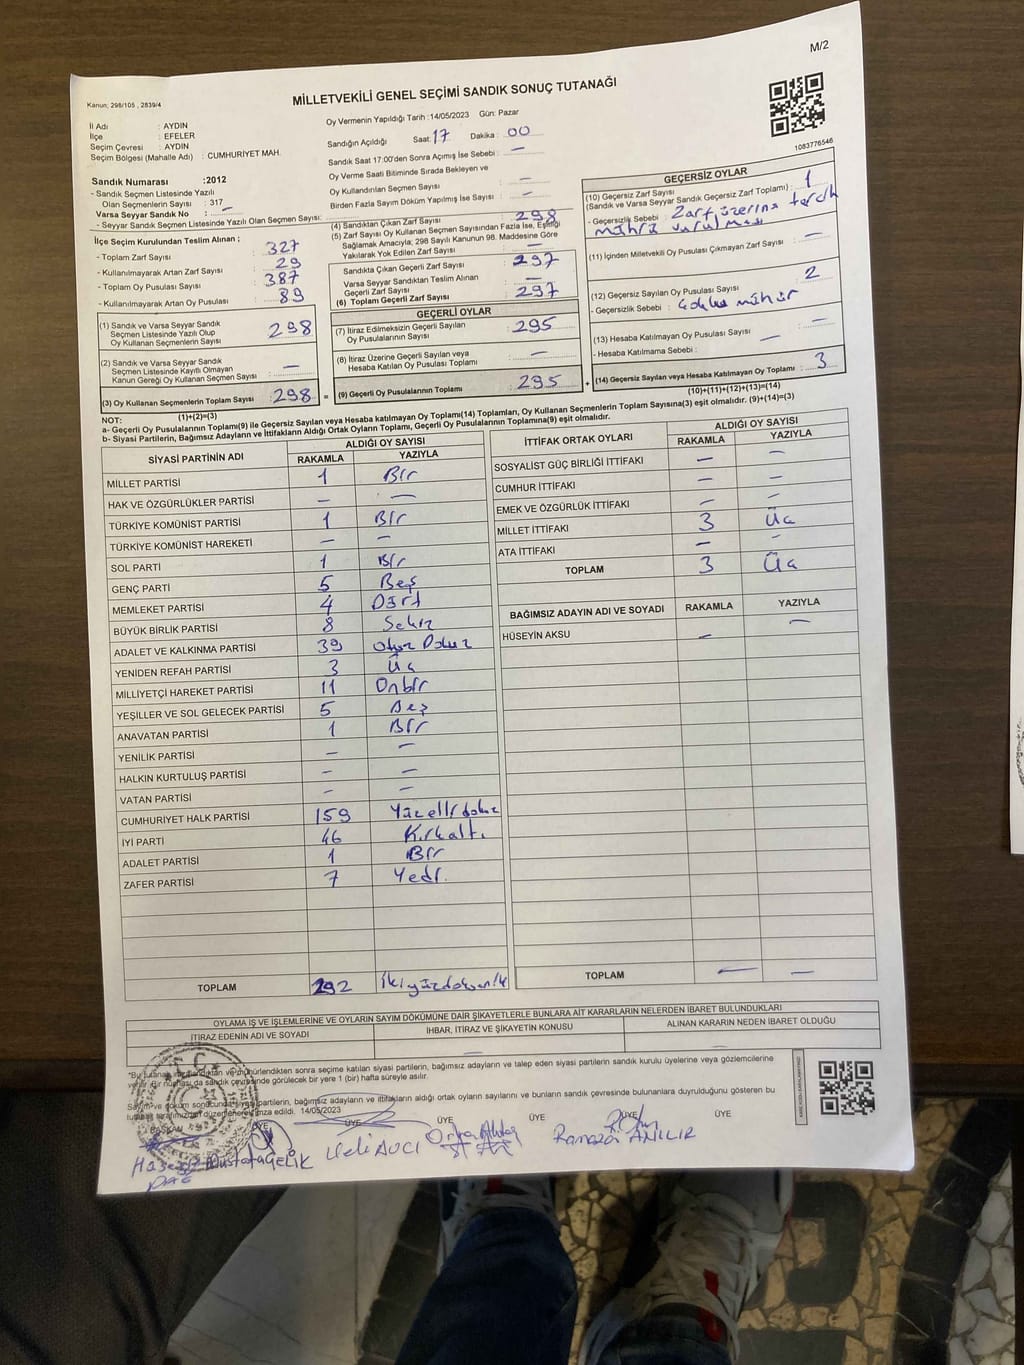 M/2
Kanun; 298/105 , 2839/4
MİLLETVEKİLİ GENEL SEÇİMİ SANDIK SONUÇ TUTANAĞI
İl Adı : AYDIN
İlçe : EFELER
Seçim Çevresi : AYDIN
Seçim Bölgesi (Mahalle Adı) : CUMHURİYET MAH.
Sandık Numarası :2012
- Sandık Seçmen Listesinde Yazılı
Olan Seçmenlerin Sayısı : 317
Varsa Seyyar Sandık No : –
- Seyyar Sandık Seçmen Listesinde Yazılı Olan Seçmen Sayısı:
İlçe Seçim Kurulundan Teslim Alınan ;
- Toplam Zarf Sayısı : 327
- Kullanılmayarak Artan Zarf Sayısı : 29
- Toplam Oy Pusulası Sayısı : 387
- Kullanılmayarak Artan Oy Pusulası : 89
(1) Sandık ve Varsa Seyyar Sandık
Seçmen Listesinde Yazılı Olup
Oy Kullanan Seçmenlerin Sayısı : 298
(2) Sandık ve Varsa Seyyar Sandık
Seçmen Listesinde Kayıtlı Olmayan
Kanun Gereği Oy Kullanan Seçmen Sayısı : –
(3) Oy Kullanan Seçmenlerin Toplam Sayısı : 298
(1)+(2)=(3)
Oy Vermenin Yapıldığı Tarih :14/05/2023 Gün: Pazar
Sandığın Açıldığı Saat: 17 Dakika : 00
Sandık Saat 17:00'den Sonra Açımış İse Sebebi : –
Oy Verme Saati Bitiminde Sırada Bekleyen ve
Oy Kullandırılan Seçmen Sayısı : –
Birden Fazla Sayım Döküm Yapılmış İse Sayısı : –
(4) Sandıktan Çıkan Zarf Sayısı : 298
(5) Zarf Sayısı Oy Kullanan Seçmen Sayısından Fazla İse, Eşitliği
Sağlamak Amacıyla; 298 Sayılı Kanunun 98. Maddesine Göre
Yakılarak Yok Edilen Zarf Sayısı : –
Sandıkta Çıkan Geçerli Zarf Sayısı : 297
Varsa Seyyar Sandıktan Teslim Alınan
Geçerli Zarf Sayısı : –
(6) Toplam Geçerli Zarf Sayısı : 297
GEÇERLİ OYLAR
(7) İtiraz Edilmeksizin Geçerli Sayılan
Oy Pusulalarının Sayısı : 295
(8) İtiraz Üzerine Geçerli Sayılan veya
Hesaba Katılan Oy Pusulası Toplamı : –
(9) Geçerli Oy Pusulalarının Toplamı : 295
1083776546
GEÇERSİZ OYLAR
(10) Geçersiz Zarf Sayısı
(Sandık ve Varsa Seyyar Sandık Geçersiz Zarf Toplamı) : 1
- Geçersizlik Sebebi : Zarf üzerine tercih
mührü vurulması
(11) İçinden Milletvekili Oy Pusulası Çıkmayan Zarf Sayısı : –
(12) Geçersiz Sayılan Oy Pusulası Sayısı : 2
- Geçersizlik Sebebi : mühür
(13) Hesaba Katılmayan Oy Pusulası Sayısı : –
- Hesaba Katılmama Sebebi :
(14) Geçersiz Sayılan veya Hesaba Katılmayan Oy Toplamı : 3
(10)+(11)+(12)+(13)=(14)
NOT:
a- Geçerli Oy Pusulalarının Toplamı(9) ile Geçersiz Sayılan veya Hesaba katılmayan Oy Toplamı(14) Toplamları, Oy Kullanan Seçmenlerin Toplam Sayısına(3) eşit olmalıdır. (9)+(14)=(3)
b- Siyasi Partilerin, Bağımsız Adayların ve İttifakların Aldığı Ortak Oyların Toplamı, Geçerli Oy Pusulalarının Toplamına(9) eşit olmalıdır.
SİYASİ PARTİNİN ADI ALDIĞI OY SAYISI
RAKAMLA YAZIYLA
MİLLET PARTİSİ 1 Bir
HAK VE ÖZGÜRLÜKLER PARTİSİ – –
TÜRKİYE KOMÜNİST PARTİSİ 1 Bir
TÜRKİYE KOMÜNİST HAREKETİ – –
SOL PARTİ 1 Bir
GENÇ PARTİ 5 Beş
MEMLEKET PARTİSİ 4 Dört
BÜYÜK BİRLİK PARTİSİ 8 Sekiz
ADALET VE KALKINMA PARTİSİ 39 Otuz Dokuz
YENİDEN REFAH PARTİSİ 3 Üç
MİLLİYETÇİ HAREKET PARTİSİ 11 Onbir
YEŞİLLER VE SOL GELECEK PARTİSİ 5 Beş
ANAVATAN PARTİSİ 1 Bir
YENİLİK PARTİSİ – –
HALKIN KURTULUŞ PARTİSİ – –
VATAN PARTİSİ – –
CUMHURİYET HALK PARTİSİ 159 Yüzellidokuz
İYİ PARTİ 46 Kırkaltı
ADALET PARTİSİ 1 Bir
ZAFER PARTİSİ 7 Yedi
TOPLAM 292 İkiyüzdoksanik
İTTİFAK ORTAK OYLARI ALDIĞI OY SAYISI
RAKAMLA YAZIYLA
SOSYALİST GÜÇ BİRLİĞİ İTTİFAKI – –
CUMHUR İTTİFAKI – –
EMEK VE ÖZGÜRLÜK İTTİFAKI – –
MİLLET İTTİFAKI 3 Üç
ATA İTTİFAKI – –
TOPLAM 3 Üç
BAĞIMSIZ ADAYIN ADI VE SOYADI RAKAMLA YAZIYLA
HÜSEYİN AKSU – –
TOPLAM – –
OYLAMA İŞ VE İŞLEMLERİNE VE OYLARIN SAYIM DÖKÜMÜNE DAİR ŞİKAYETLERLE BUNLARA AİT KARARLARIN NELERDEN İBARET BULUNDUKLARI
İTİRAZ EDENİN ADI VE SOYADI İHBAR, İTİRAZ VE ŞİKAYETİN KONUSU ALINAN KARARIN NEDEN İBARET OLDUĞU
"Bu tutanak imzalandıktan ve mühürlendikten sonra seçime katılan siyasi partilerin, bağımsız adayların ve talep eden siyasi partilerin sandık kurulu üyelerine veya gözlemcilerine
verilir. Bir nüshası da sandık çevresinde görülecek bir yere 1 (bir) hafta süreyle asılır.
Sayım ve döküm sonucunda siyasi partilerin, bağımsız adayların ve ittifakların aldığı ortak oyların sayılarını ve bunların sandık çevresinde bulunanlara duyrulduğunu gösteren bu
tutanak tarafımızdan düzenlenerek imza edildi. 14/05/2023
BAŞKAN ÜYE ÜYE ÜYE ÜYE ÜYE ÜYE
Mustafa ÇELİK AVCI Ramazan ANILIR